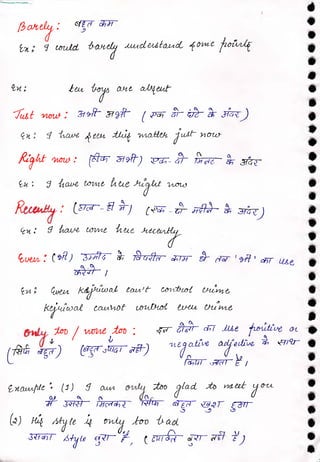 Barely : बहुत कम
Ex: I could barely understand some points
Ex: ten boys are absent
Just now : अभी अभी ( एक दो घंटे के अंदर )
Ex : I have seen this matter just now
Right now : (ठीक अभी) एक-दो मिनट के अंदर
Ex : I have come here right now
Recently : (हाल-ही में) (एक-दो महीने के अंदर)
Ex: I have come here recently
Even : (भी) उम्मीद के विपरीत काम हो तब 'भी' का use
करेंगे ।
Ex: Even Kejriwal can't control crime
Kejriwal cannot control even crime
only too / none too : इन दोनों का use positive or
(सिर्फ बहुत) (बहुत ज्यादा नहीं) negative adjective के साथ
किया जाता है ।
Example : (1) I am only too glad to meet you
मैं आपसे मिलकर सिर्फ बहुत खुश हुआ
(2) His style is only too bad
उसका style बुरा है, ( इसकी बुरा नहीं है )